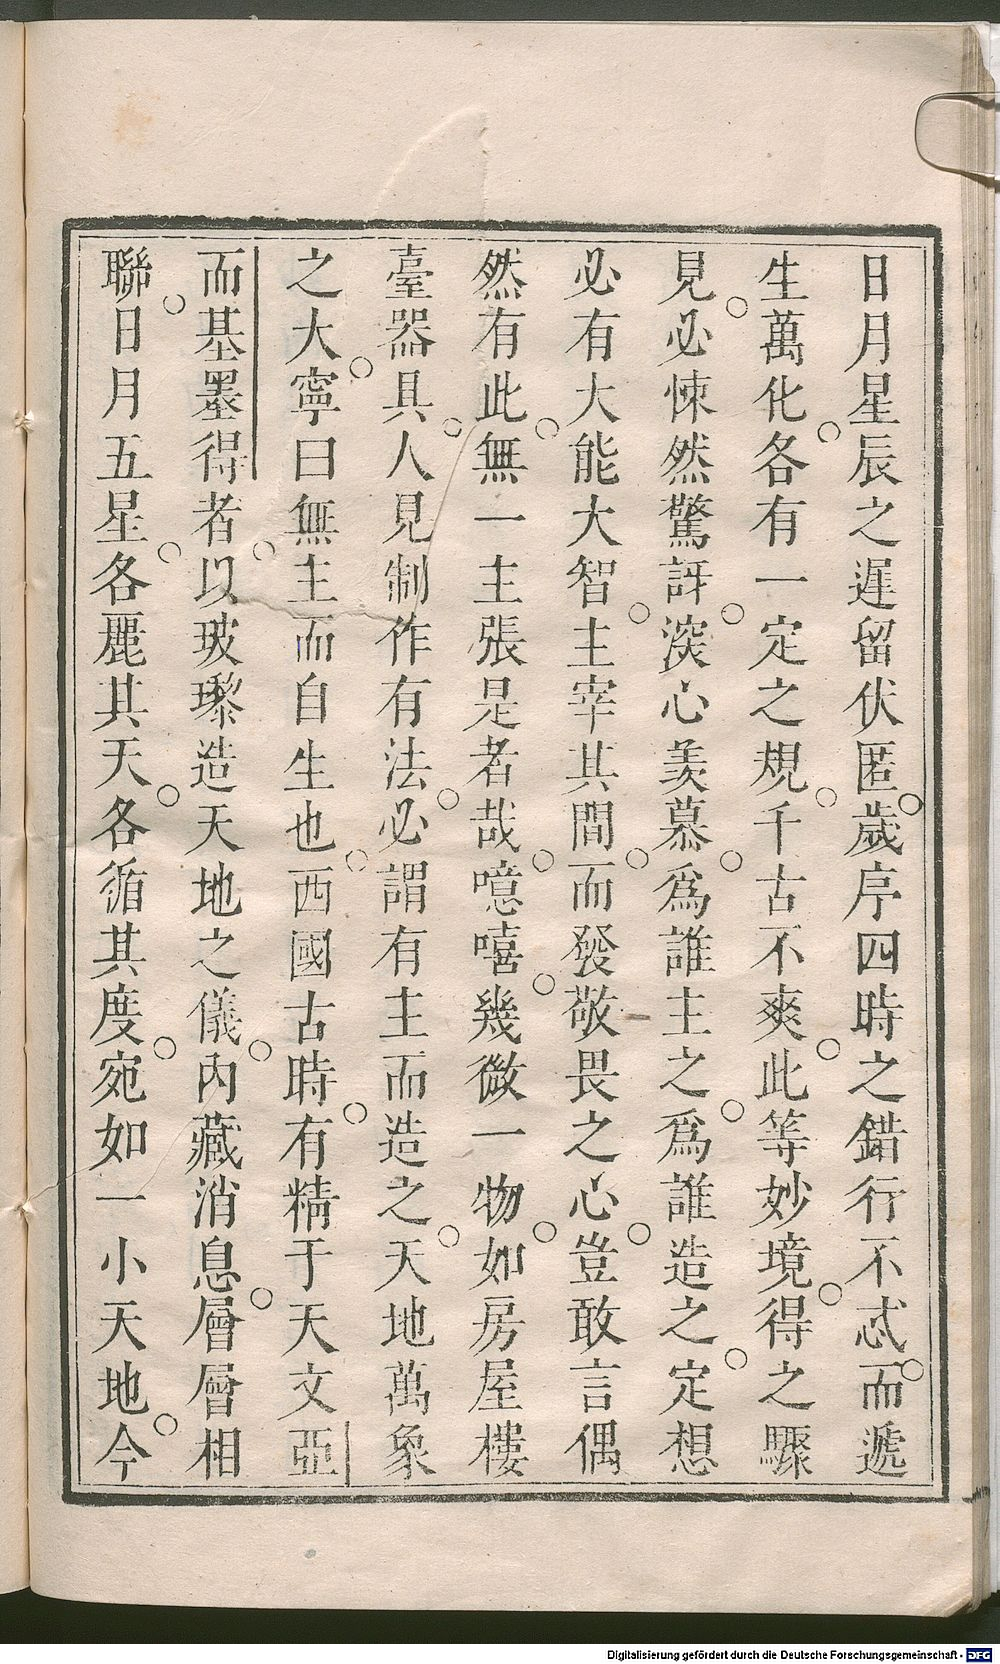 日月星辰之遲留伏匿歲序四時之錯行不忒而遞
生萬化各有一定之規千古不爽此等妙境得之驟
見必悚然驚訝深心羨慕爲誰主之爲誰造之定想
必有大能大智主宰其間而發敬畏之心豈敢言偶
然有此無一主張是者哉噫嘻幾微一物如房屋樓
臺器具人見制作有法必謂有主而造之天地萬象
之大寧曰無主而自生也西國古時有精于天文亞
而基墨得者以玻瓈造天地之儀內藏消息層層相
聯日月五星各麗其天各循其度宛如一小天地今
Digitalisierung gefördert durch die Deutsche Forschungsgemeinschaft - DFG